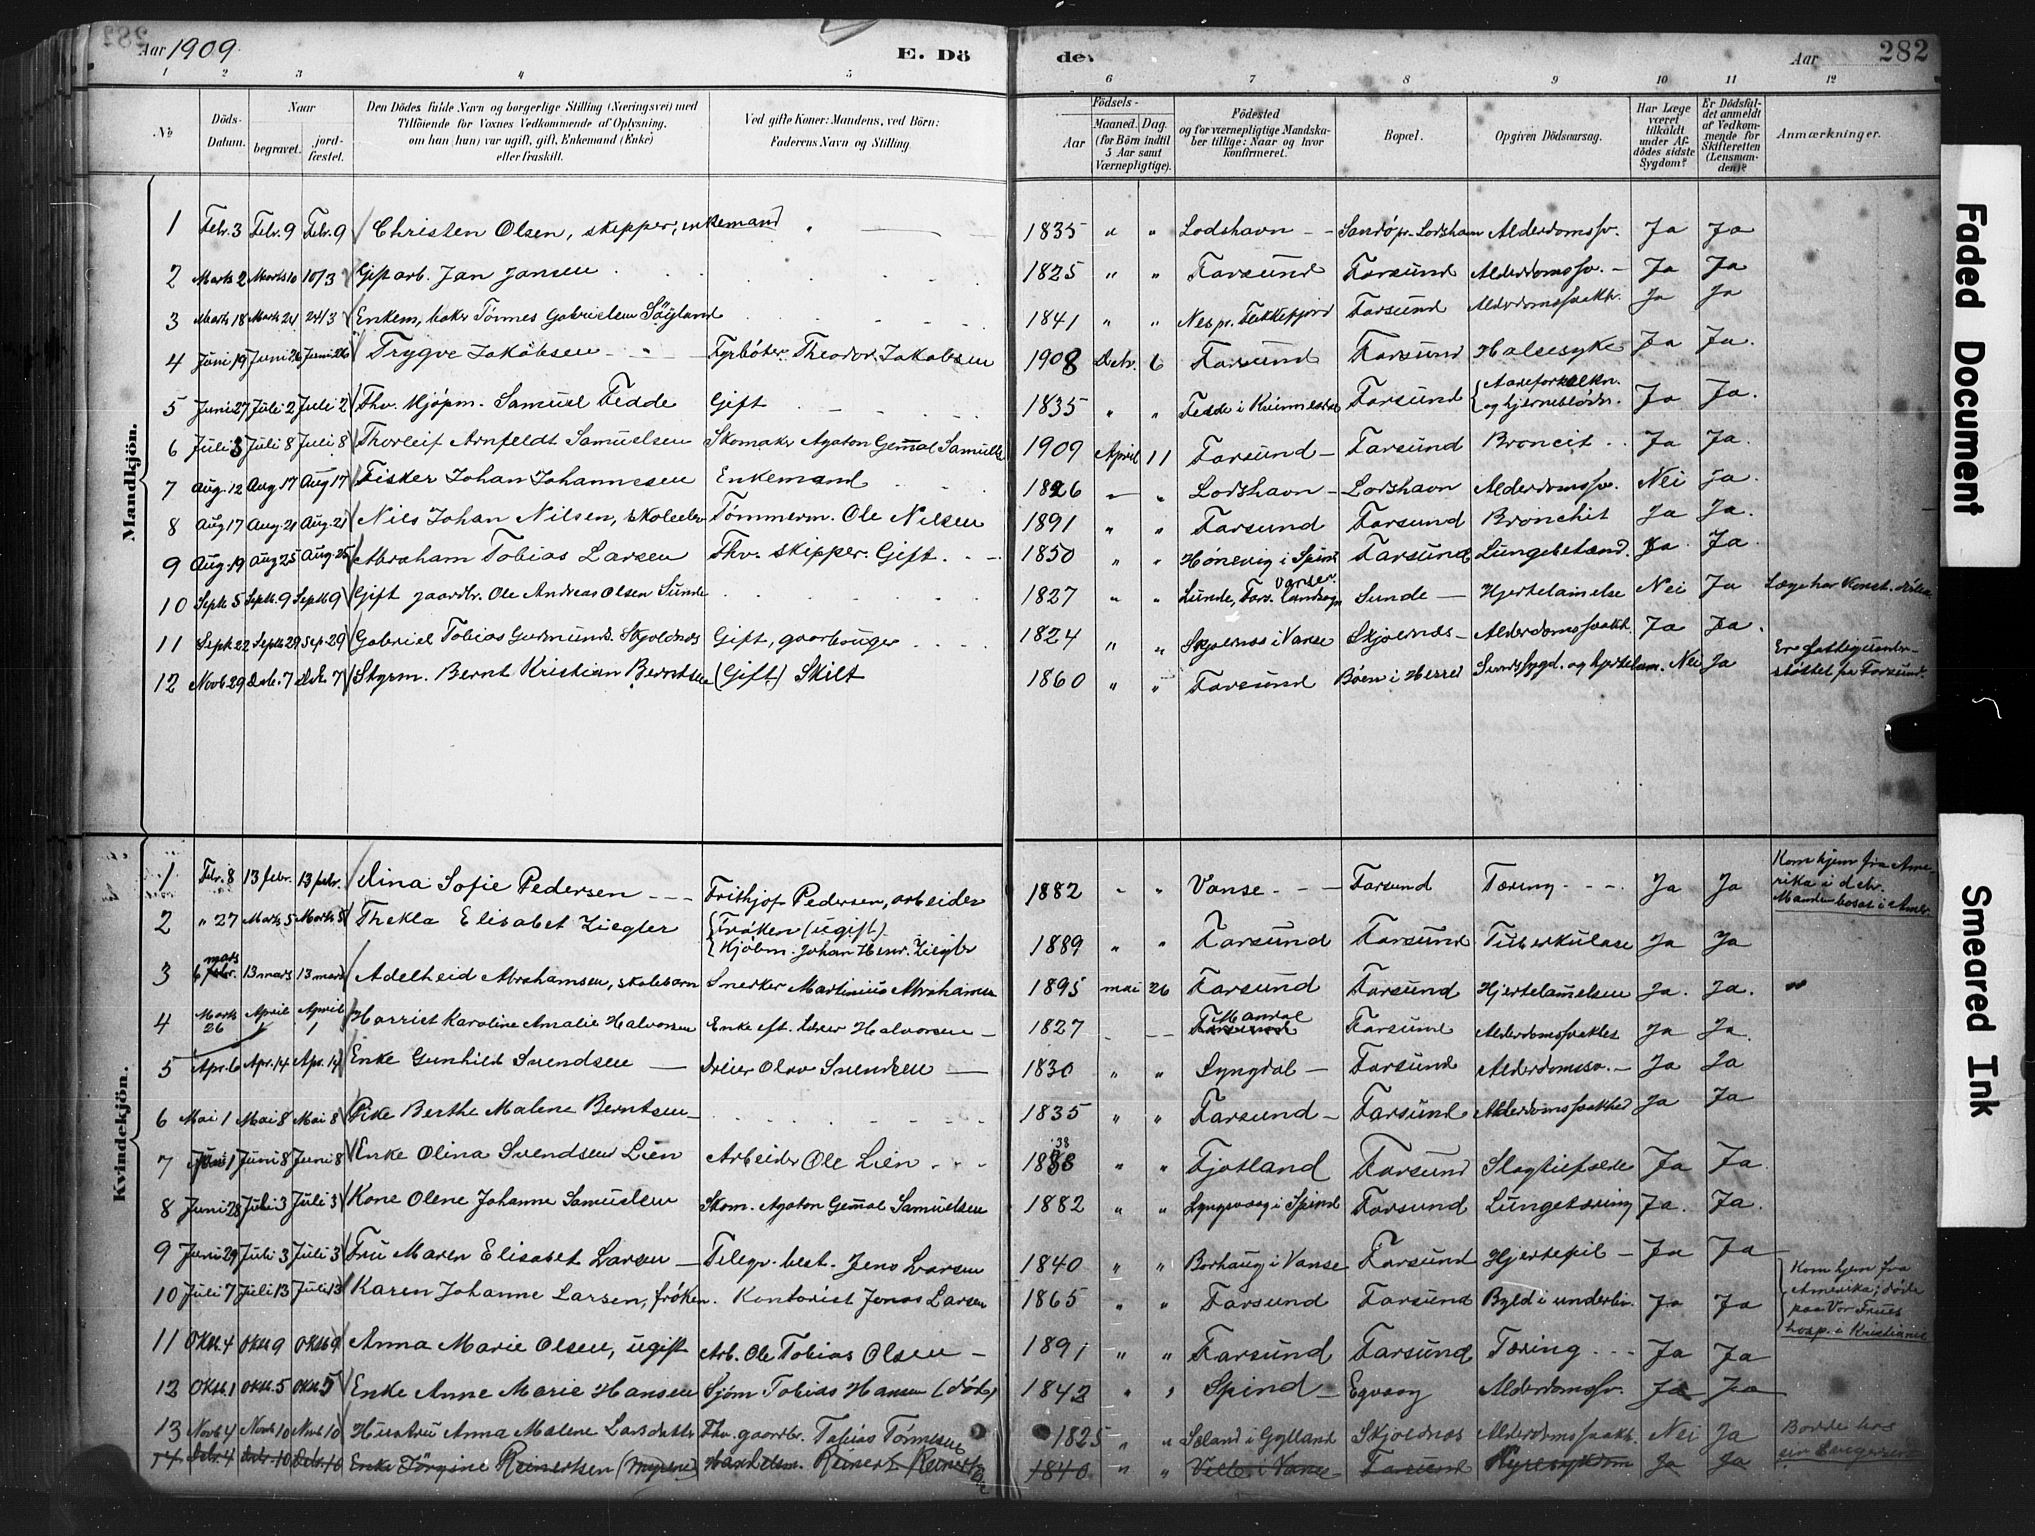 Aar 1909. E. Dö de. Aar 282
1 2 3 4 5 6 7 8 9 10 11 12
No
Döds-Datum.
Naar begravet. jordfæstet.
Den Dödes fulde Navn og borgerlige Stilling (Næringsvei) med
Tilföiende for Voxnes Vedkommende af Oplysning,
om han (hun) var ugift, gift, Enkemand (Enke)
eller fraskilt.
Ved gifte Koner: Mandens, ved Börn:
Faderens Navn og Stilling.
Födsels-
Aar Maaned. Dag.
(for Börn indtil 5 Aar samt Værnepligtige).
Födested
og for værnepligtige Mandska-
ber tillige: Naar og hvor
konfirmeret.
Bopæl.
Opgiven Dödsaarsag.
Har Læge været tilkaldt under Afdödes sidste Sygdom?
Er Dödsfaldet anmeldt af Vedkommende for Skifteretten (Lensmanden)?
Anmærkninger.
Mandkjön.
1 Febr. 3 Febr. 9 Febr. 9 Christen Olsen, skipper, enkemand " 1835 " " Lodshavn Lodshavn Alderdomssv. Ja Ja
2 Marts 2 Marts 10 10/3 Gift arb. Jan Jansen 1825 " " Farsund Farsund Alderdomssv. Ja Ja
3 Marts 18 Marts 24 24/3 Enkem, baker Tönnes Gabrielsen 1841 " " Nes pr. Flekkefjord Farsund Alderdomssvakh. Ja Ja
4 Juni 19 Juni 26 Juni 26 Trygve Jakobsen " Fyrböter Theodor Jakobsen 1908 Debr. 6 Farsund Farsund Halsesyke Ja Ja.
5 Juni 27 Juli 2 Juli 2 Fhv. Kjöpm. Samuel Fedde Gift 1835 " " Fedde i Kvinnesdal Farsund Aareforkalkn. og hjerneblödn. Ja Ja.
6 Juli 3 Juli 8 Juli 8 Thorleif Arnfeldt Samuelsen Skomaker Agaton Gemal 1909 April 11 Farsund Farsund Broncit Ja Ja.
7 Aug. 12 Aug 17 Aug 17 Fisker Johan Johannesen Enkemand 1826 " Lodshavn Lodshavn Alderdomssv. Nei ja.
8 Aug 17 Aug. 21 Aug. 21 Niels Johan Nilsen, skoleelev Tömmerm. Ole Nilsen 1891 " " Farsund Farsund Bronchit Ja Ja.
9 Aug. 19 Aug 25 Aug. 25 Abraham Tobias Larsen Fhv. skipper. Gift. 1850 " " Hönevig i Spind Farsund Lungebetænd. Ja Ja.
10 Septb. 5 Septb. 9 Septb 9 Gift gaardbr. Ole Andreas Olsen Sunde 1827 " " Lunde, Vanse Landsogn Sunde Hjertelamelse Nei Ja Læge har Konst.
11 Septb 22 Septb 29 Sep. 29 Gabriel Tobias Gudmunds. Skjoldnes Gift, gaardbruger 1824 " " Skjolnes i Vanse Skjolnes Alderdomssvakh. Ja Ja.
12 Novb 29 Deb. 7 Deb. 7 Styrm. Bernt Kristian Berntsen (Gift) Skilt 1860 " " Farsund Böen i Herred og hjertelam. Nei Ja Er fattigunder-
stöttet fra Farsund.
Kvindekjön.
1 Febr. 8 13 febr. 13 febr. Sofie Pedersen Frithjof Pedersen, arbeider 1882 " " Vanse Farsund Tæring Ja Ja Kom hjem fra Ame-
rika i debr.
Manden bosat i Amr.
2 " 27 Marts 5 Marts 5 Thekla Elisabet Ziegler Fröken (ugift)
Kjöbm. Johan Henr. Ziegler 1889 " " Farsund Farsund Tuberkulose Ja Ja
3 6 mars 13 mars 13 mars Adelheid Abrahamsen, skolebarn Snekker Martinius Abrahamsen 1895 mai 26 Farsund Farsund Hjertelamelsen Ja. Ja. "
4 Marts 26 April 1 April 1 Harriet Karoline Amalie Halvorsen Enke eft. Halvorsen 1827 Mandal Farsund Alderdomssvakhet Ja Ja.
5 Apr. 6 Apr. 14 Apr. 14 Enke Gunhild Svendsen Dreier Olav Svendsen 1830 " " Lyngdal Farsund Alderdomssv. Ja Ja
6 Mai 1 Mai 8 Mai 8 Pike Berthe Malene Berntsen 1835 " " Farsund Farsund Alderdomssvakhed Ja Ja
7 Juni 1 Juni 8 Juni 8 Enke Olina Svendsen Lien Arbeider Ole Lien 1838 38 " " Fjotland Farsund Slagtilfælde Ja Ja.
8 Juni 28 Juli 3 Juli 3 Kone Olene Johanne Samuelsen Skom. Agaton Gemal Samuelsen 1882 " " Lyngsvaag i Spind Farsund Lungetæring Ja. Ja.
9 Juni 29 Juli 3 Juli 3 Fru Maren Elisabet Larsen Telegr. best. Jens Larsen 1840 " " Borhaug i Vanse Farsund Hjertefeil Ja Ja
10 Juli 7 Juli 13 Juli 13 Karen Johanne Larsen, fröken. Kontorist Jonas Larsen 1865 " " Farsund Farsund Byld i underliv. Ja Ja Kom hjem fra
Amerika; döde
paa Vor Frues
hosp. i Kristiania
11 Oktb. 4 Oktb 9 Oktb 9 Anna Marie Olsen, ugift Arb. Ole Tobias Olsen 1891 " " Farsund Farsund Tæring Ja Ja
12 Oktb. 1 Oktb. 5 Oktb. 5 Enke Anne Marie Hansen Sjöm Tobias Hansen (död) 1842 " " Spind Egvaag Alderdomssv. Ja Ja
13 Novb 4 Novb 10 Novb 10 Hustru Anna Malene Larsdatter Fhv. gaardbr. Tobias Tönnesen 1825 " " Seland i Gylland Skjoldnes Alderdomssvakh. Nei Ja Bodde hos
sin
14 Debr. 4 Debr. 10 Debr. 10 Enke Jörgine Reinertsen (Myrene) Handelsm. Reinert Reinertsen 1840 " " Ville i Vanse Farsund Nyresykdom Ja Ja
Faded Document
Smeared Ink